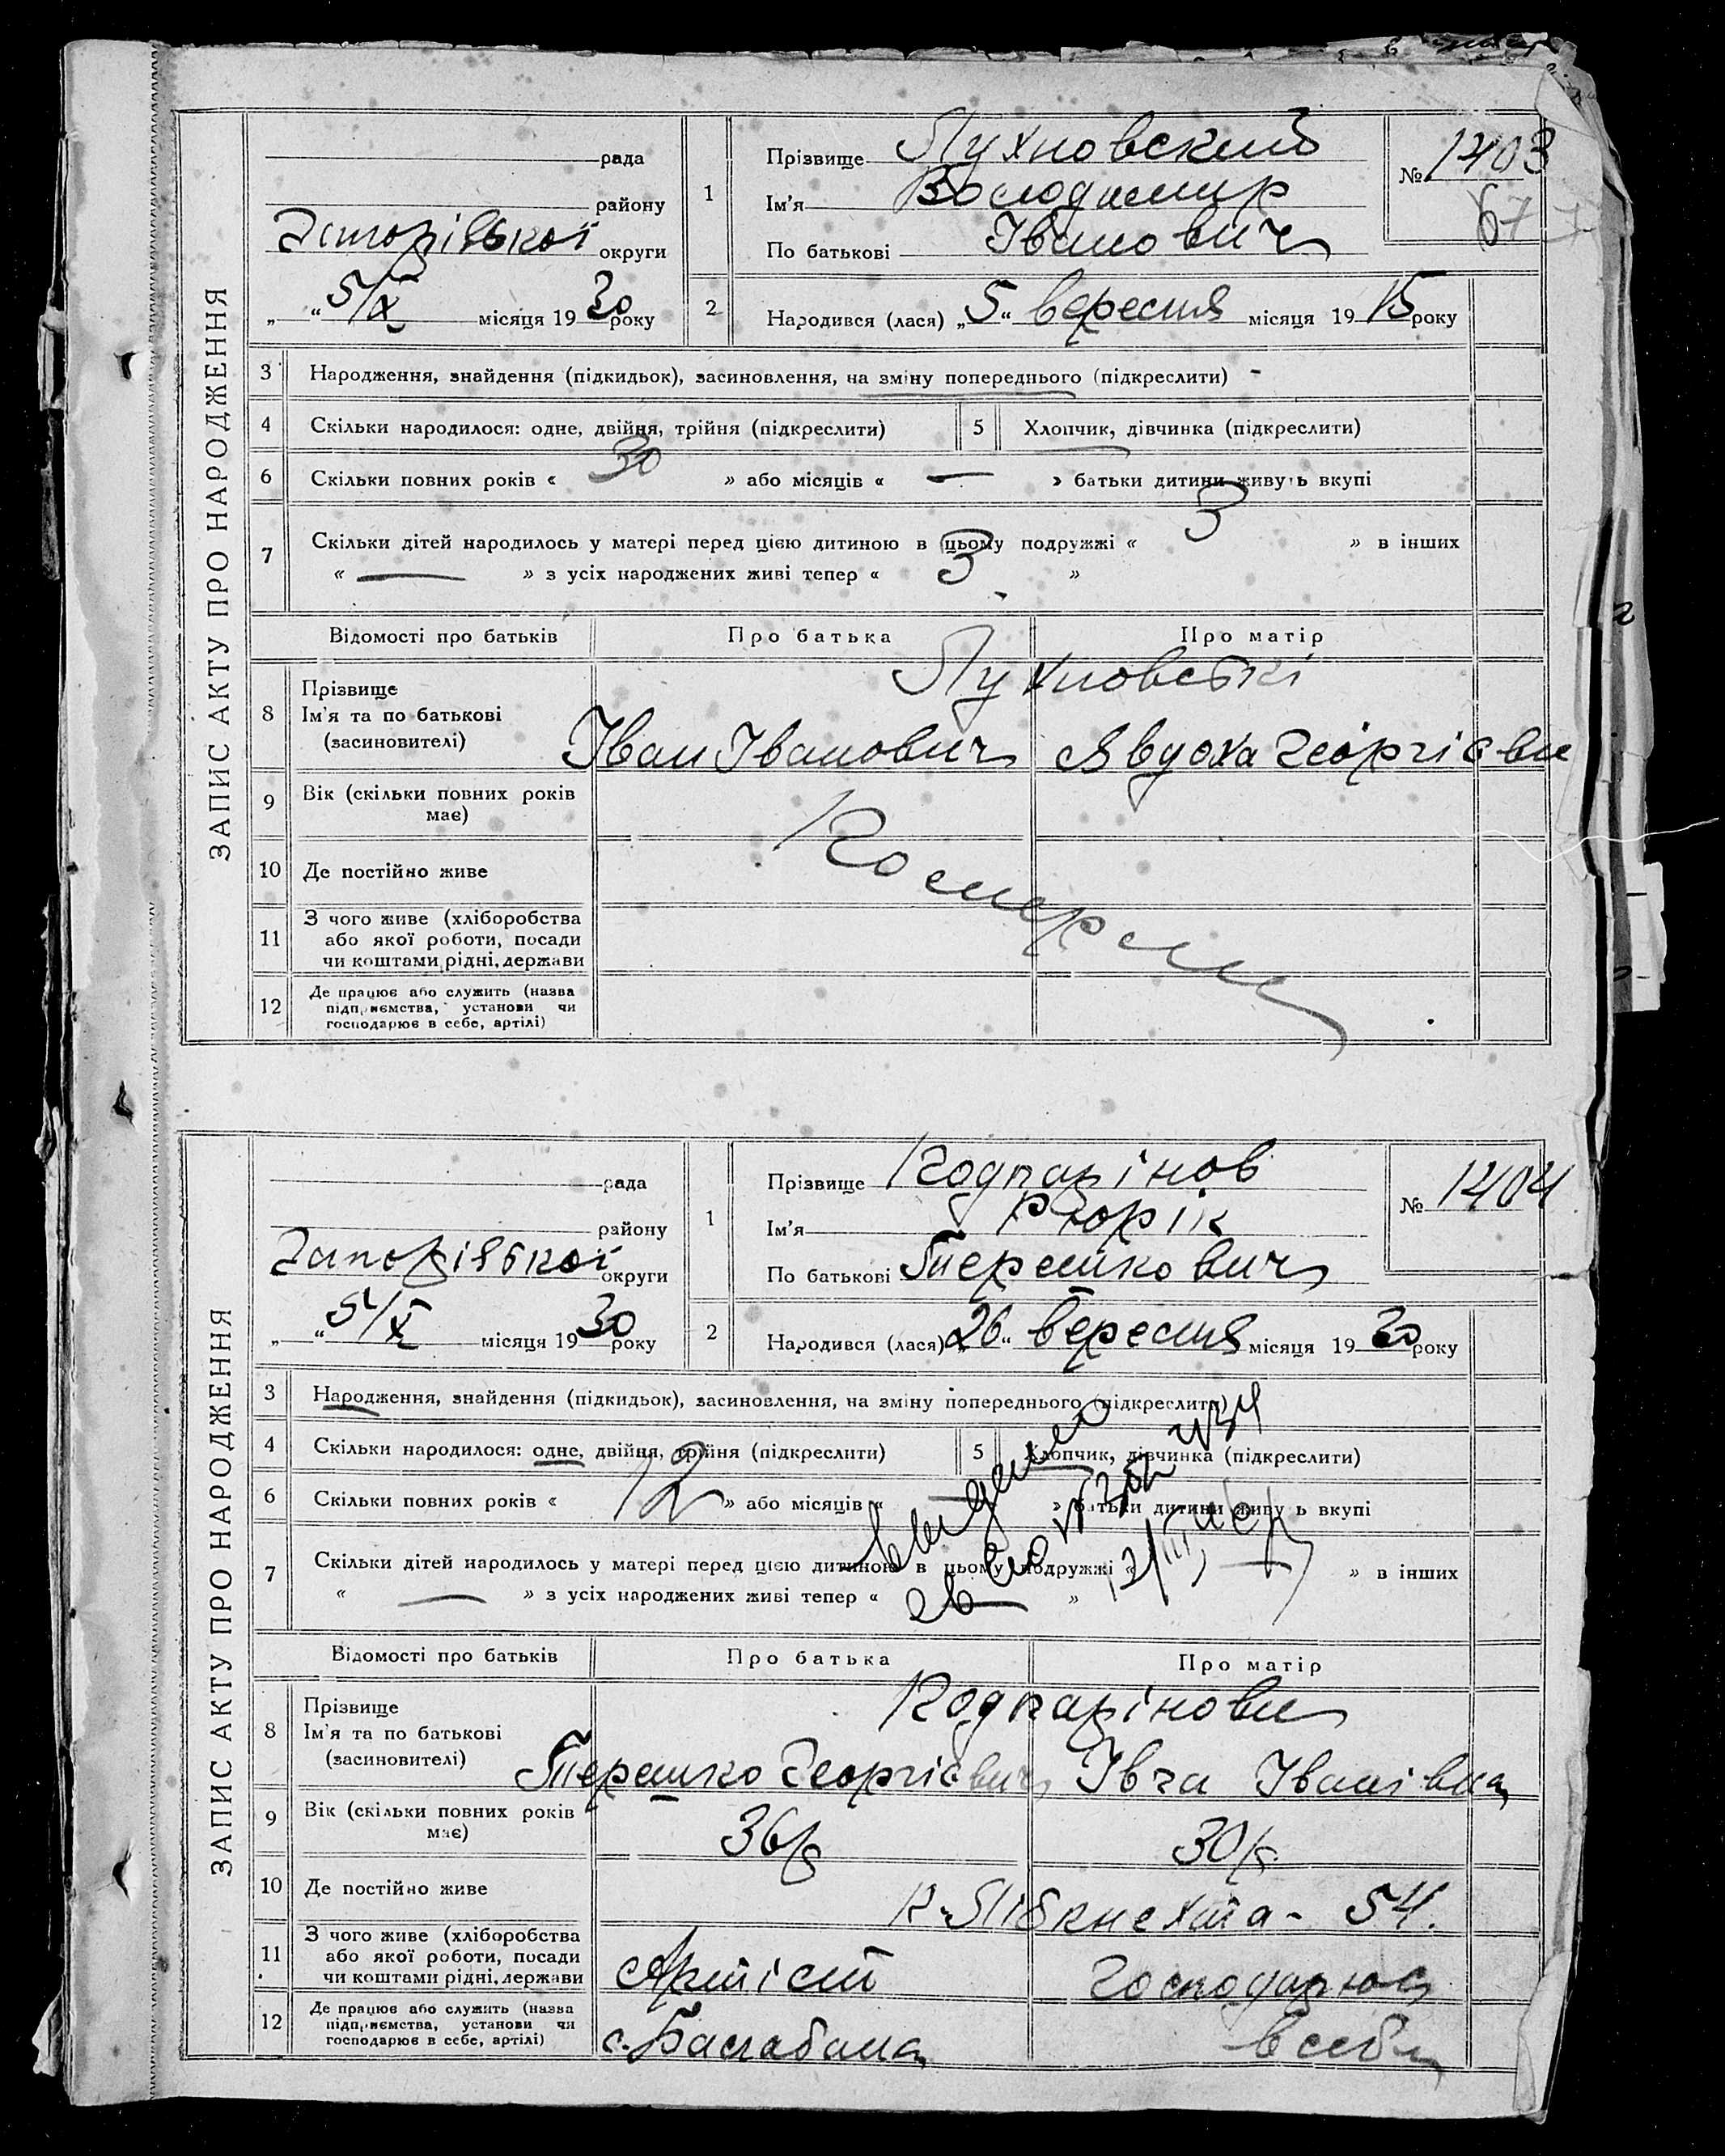 ЗАПИС АКТУ ПРО НАРОДЖЕННЯ
рада
району
Запорізької округи
„ “ 5/X місяця 1930 року
1
Прізвище Пухновский
Ім'я Володимир
По батькові Іванович
№ 1403
677
2
Народився (лася) „5“ вересня місяця 1915 року
3 Народження, знайдення (підкидьок), засиновлення, на зміну попереднього (підкреслити) -
4 Скільки народилося: одне, двійня, трійня (підкреслити) 5 Хлопчик, дівчинка (підкреслити)
6 Скільки повних років « 30 » або місяців « — » батьки дитини живуть вкупі
7 Скільки дітей народилось у матері перед цією дитиною в цьому подружжі « 3 » в інших
« — » з усіх народжених живі тепер « 3 »
Відомості про батьків Про батька Про матір
8 Прізвище
Ім'я та по батькові
(засиновителі)
Пухновські
Іван Іванович Явдоха Георгієвн
9 Вік (скільки повних років
має)
10 Де постійно живе
11 З чого живе (хліборобства
або якої роботи, посади
чи коштами рідні, держави
12 Де працює або служить (назва
підприємства, установи чи
господарює в себе, артілі)
ЗАПИС АКТУ ПРО НАРОДЖЕННЯ
рада
району
Запорізької округи
„ “ 5/X місяця 1930 року
1
Прізвище Кодпарінов
Ім'я Рюрік
По батькові Терешкович
№ 1404
2
Народився (лася) „26“ вересня місяця 1930 року
3 Народження, знайдення (підкидьок), засиновлення, на зміну попереднього (підкреслити)
4 Скільки народилося: одне, двійня, трійня (підкреслити) 5 Хлопчик, дівчинка (підкреслити)
6 Скільки повних років « 12 » або місяців « — » батьки дитини живуть вкупі
7 Скільки дітей народилось у матері перед цією дитиною в цьому подружжі « — » в інших
« — » з усіх народжених живі тепер « — »
Відомості про батьків Про батька Про матір
8 Прізвище
Ім'я та по батькові
(засиновителі)
Кодпарінови
Терешко Георгієвич Івга Іванівна
9 Вік (скільки повних років
має)
36 р 30 р
10 Де постійно живе К-Лібкнехта - 54.
11 З чого живе (хліборобства
або якої роботи, посади
чи коштами рідні, держави
Артіст Господарює
12 Де працює або служить (назва
підприємства, установи чи
господарює в себе, артілі)
с. Балабана в себе